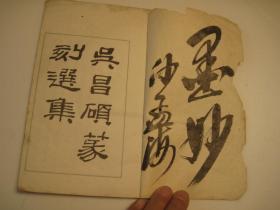 墨妙
沙孟海
吳昌碩篆
刻選集